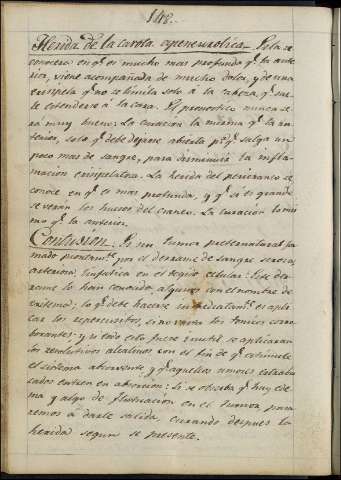 148.
Herida de la carota aponeurotica. Esta se
conocera en q.e es mucho mas profunda q.e la ante
rior, viene acompañada de mucho dolor, y de una
erisipela q.e no se limita solo á la cabeza, q.e sue
le estenderse á la cara. El pronostico nunca se
rá muy bueno. La curación la misma q.e la an
terior, solo q.e debe dejarse abierta p.a q.e salga un
poco mas de sangre, para disminuir la infla
macion erisipelatosa. La herida del pericraneo se
conoce en q.e es mas profunda, y q.e si es grande
se verán los huesos del craneo. La curación lo mis
mo q.e la anterior.
Contusión. Es un tumor preternatural for
mado prontam.te por el derrame de sangre venosa,
arteriosa, linfatica en el tegido celular: Este der
rame lo han conocido algunos con el nombre de
; lo q.e debe hacerse inmediatam.te es apli
car los repercusivos, si no van los tonicos corro
borantes: y si todo esto fuere inutil se aplicaran
los resolutivos alcalinos con el fin de q.e estimule
el sistema absorvente y q.e aquellos umores estrabа
sados entren en absorcion: Si se observa q.e hay ede
ma y algo de fluctuación en el tumor, pasa
remos á darle salida, curando despues la
herida segun se presente.